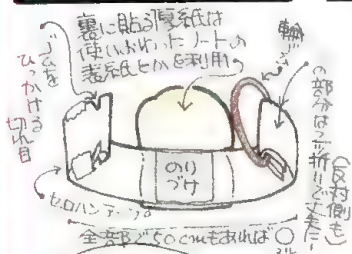 裏に貼る厚紙は
使いふるったノートの
表紙とかを利用
輪ゴム
ゴムを
ひっかける
切れ目
の部分は二ツ折りで丈夫に
(反対側も)
のり
づけ
セロハンテープ
全部で50cmもあれば○